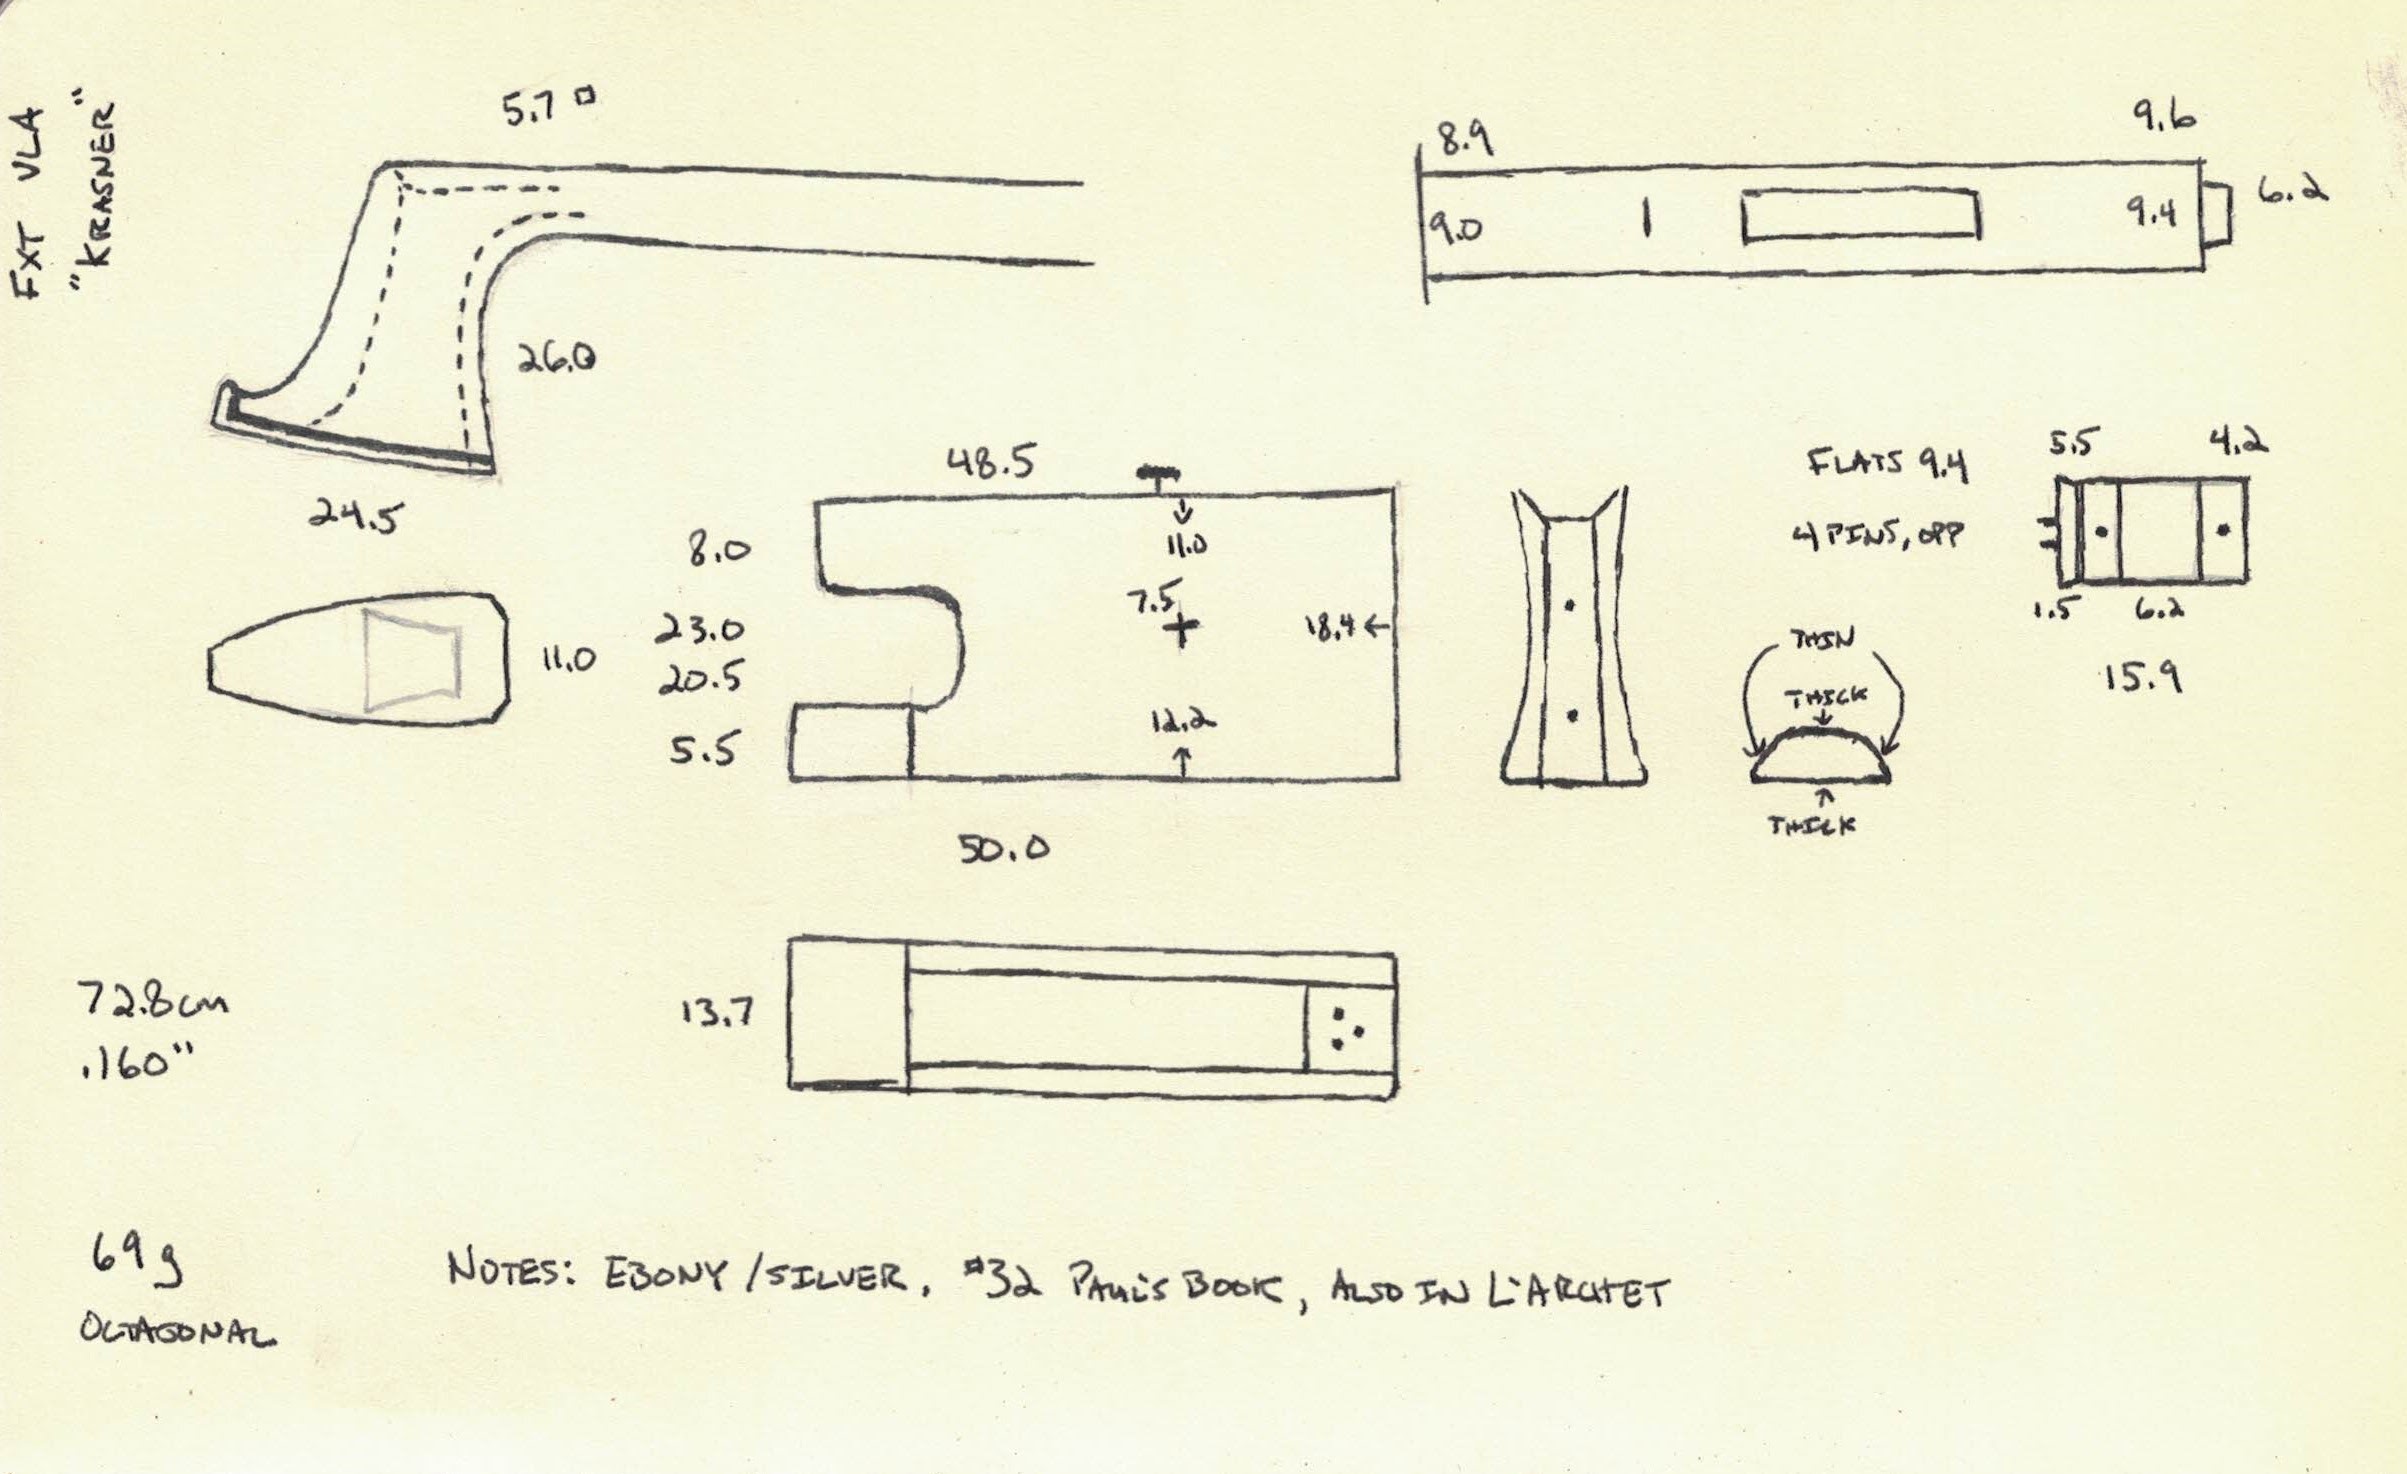 FXT VLA
"KRASNER"
5.7 □
26.0
24.5
11.0
8.9
9.0
9.6
9.4
6.2
48.5
8.0
23.0
20.5
5.5
11.0
7.5
18.4
12.2
50.0
FLATS 9.4
4 PINS, OPP
5.5 4.2
1.5 6.2
15.9
THIN
THICK
THICK
13.7
72.8cm
.160"
69g
OCTAGONAL
NOTES: EBONY/SILVER. #32 PAUL'S BOOK, ALSO IN L'ARCHET